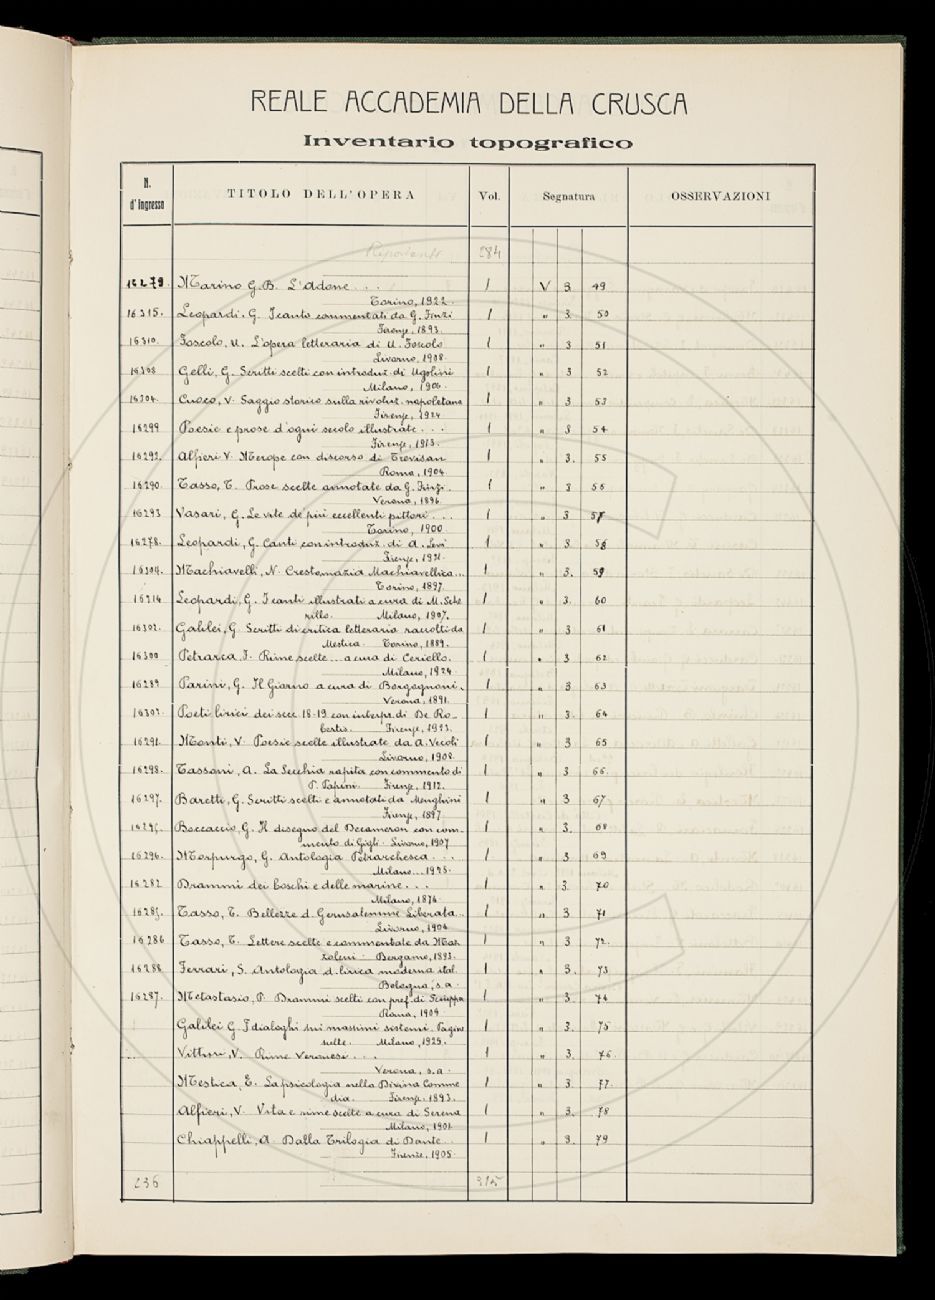 REALE ACCADEMIA DELLA CRUSCA
Inventario topografico
N. d'Ingresso TITOLO DELL'OPERA Vol. Segnatura OSSERVAZIONI
284
16279. Marino G. B. L'Adone . . . 1 V 3 49
Torino, 1922.
16315. Leopardi. G. I canti commentati da G. Finzi 1 " 3. 50
Firenze, 1893.
16310. Foscolo, U. L'opera letteraria di U. Foscolo 1 " 3 51
Livorno, 1908.
16308 Gelli, G. Scritti scelti con introduz. di Ugolini 1 " 3 52
Milano, 1906.
16304. Cuoco, V. Saggio storico sulla rivoluz. napoletana 1 " 3 53
Firenze, 1924
16299 Poesie e prose d'ogni secolo illustrate . . . 1 " 3 54
Firenze, 1913.
16292. Alfieri V. Merope con discorso di Trevisan 1 " 3. 55
Roma, 1904.
16290. Tasso, T. Prose scelte annotate da G. Finzi. 1 " 3 56
Verona, 1896.
16293 Vasari, G. Le vite de' più eccellenti pittori . . . 1 " 3 57
Torino, 1900
16278. Leopardi, G. Canti con introduz. di A. Levi 1 " 3. 58
Firenze, 1921.
16304. Machiavelli, N. Crestomazia Machiavellica... 1 " 3. 59
Torino, 1897.
16214 Leopardi, G. I canti illustrati a cura di M. Sche 1 " 3. 60
rillo. Milano, 1907.
16302. Galilei, G. Scritti di critica letteraria raccolti da 1 " 3 61
Mestica. Torino, 1889.
16300 Petrarca, F. Rime scelte ... a cura di Ceriello. 1 " 3 62
Milano, 1924.
16289 Parini, G. Il Giorno a cura di Borgognoni. 1 " 3 63
Verona, 1891.
16303. Poeti lirici dei secc. 18-19 con interpr. di De Ro- 1 " 3. 64
bertis. Firenze, 1923.
16291. Monti, V. Poesie scelte illustrate da A. Vecoli 1 " 3 65
Livorno, 1908.
16298. Tassoni, A. La Secchia rapita con commento di 1 " 3 66.
P. Papini. Firenze, 1912.
16297. Baretti, G. Scritti scelti e annotati da Menghini 1 " 3 67
Firenze, 1897
Boccaccio, G. Il disegno del Decameron con com- 1 " 3. 68
mento di Gigli. Livorno, 1907
16296. Morpurgo, G. Antologia Petrarchesca . . . 1 " 3 69
Milano... 1925.
16282 Drammi dei boschi e delle marine . . . 1 " 3. 70
Milano, 1876.
16285. Tasso, T. Bellezze d. Gerusalemme Liberata... 1 " 3 71
Livorno, 1904
16286 Tasso, T. Lettere scelte e commentate da Maz 1 " 3 72.
zoleni. Bergamo, 1893.
16288 Ferrari, S. Antologia d. lirica moderna ital. 1 " 3. 73
Bologna, s. a.
16287. Metastasio, P. Drammi scelti con pref. di 1 " 3. 74
Roma, 1909
Galilei G. I dialoghi sui massimi sistemi. Pagine 1 " 3. 75
scelte. Milano, 1925.
V. Rime Veronesi . . . 1 " 3. 76.
Verona, s. a.
Mestica, E. La psicologia nella Divina Comme 1 " 3 77.
dia. Firenze. 1893.
Alfieri, V. Vita e rime scelte a cura di Serena 1 " 3. 78
Milano, 1901.
Chiappelli, A. Dalla Trilogia di Dante. 1 " 3. 79
Firenze, 1905.
236 315